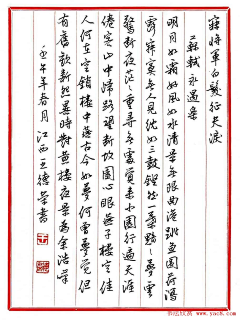 寐將軍白髮征夫淚
蘇軾永遇樂
明月如霜好風如水清景無限曲港跳魚圓荷瀉
露寂寞無人見紞如三鼓鏗然一葉黯黯夢雲
驚斷夜茫茫重尋無處覺來小園行遍天涯
倦客山中歸路望斷故園心眼燕子樓空佳
人何在空鎖樓中燕古今如夢何曾夢覺但
有舊歡新怨異時對黄樓夜景為余浩嘆
壬午年春月江西王德榮書